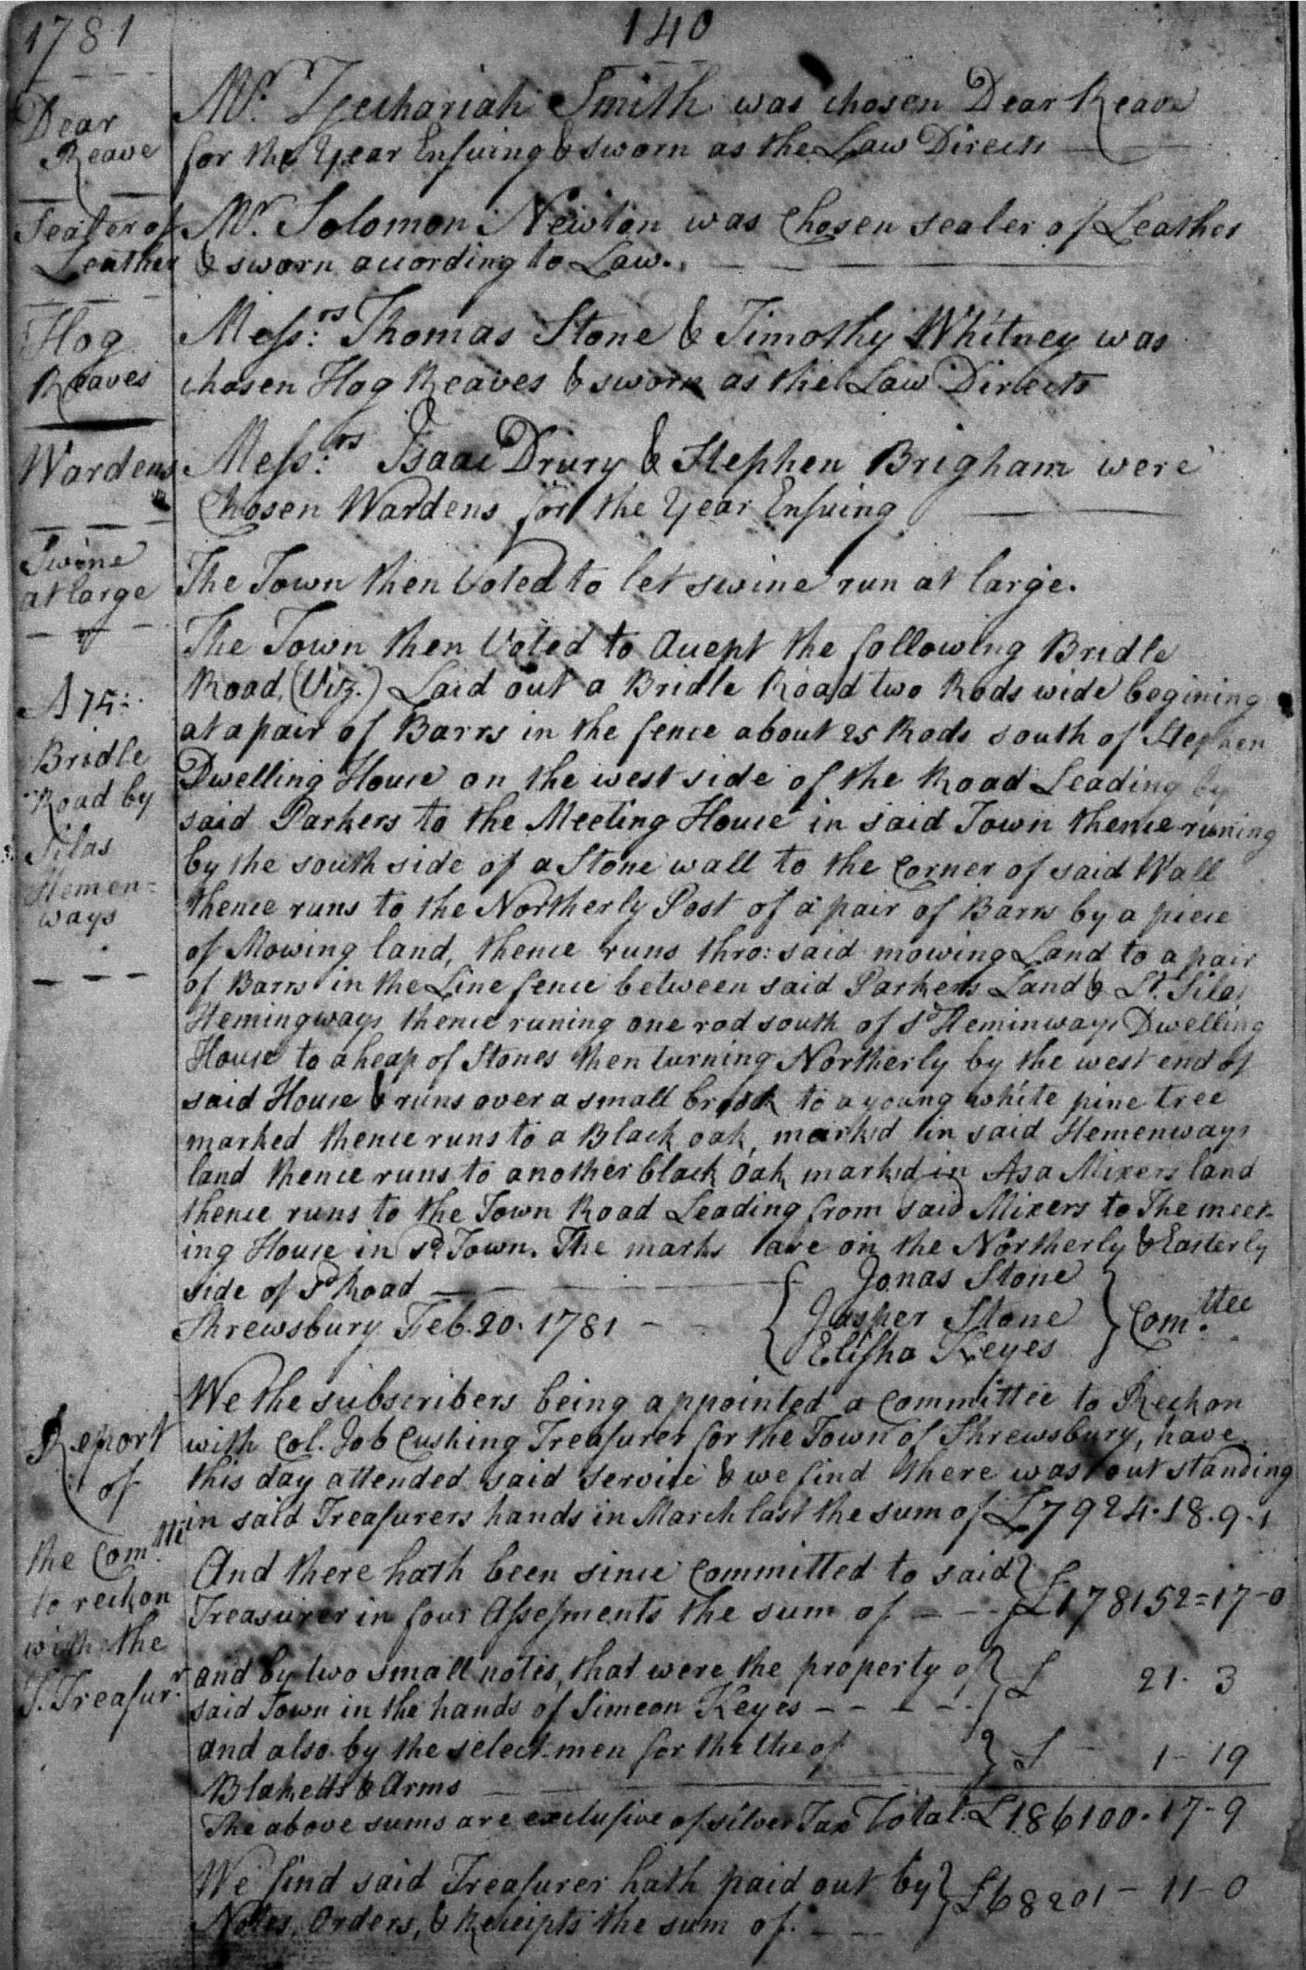 1781
140
Dear
Reave
Mr. Zechariah Smith was chosen Dear Reave
for the Year Ensuing & sworn as the Law Directs
Sealer of
Leather
Mr. Solomon Newton was Chosen sealer of Leather
& sworn according to Law.
Hog
Reaves
Messrs: Thomas Stone & Timothy Whitney was
chosen Hog Reaves & sworn as the Law Directs
Wardens
Messrs: Isaac Drury & Stephen Brigham were
Chosen Wardens for the Year Ensuing
Swine
at large
The Town then Voted to let swine run at large.
A 75:
Bridle
Road by
Silas
Hemen=
ways
The Town then Voted to Accept the following Bridle
Road (Viz.) Laid out a Bridle Road two Rods wide begining
at a pair of Barrs in the fence about 25 Rods south of Stephen
Dwelling House on the west side of the Road Leading by
said Parkers to the Meeting House in said Town thence runing
by the south side of a Stone wall to the Corner of said Wall
thence runs to the Northerly Post of a pair of Barrs by a piece
of Mowing land, thence runs thro: said mowing Land to a pair
of Barrs in the Line fence between said Parkers Land & Lt. Silas
Hemingways thence runing one rod south of sd Heminways Dwelling
House to a heap of Stones then turning Northerly by the west end of
said House & runs over a small brook to a young white pine tree
marked thence runs to a Black oak, markd in said Hemenways
land thence runs to another black Oak markd in Asa Mixers land
thence runs to the Town Road Leading from said Mixers to The meet-
ing House in sd Town. The marks are on the Northerly & Easterly
side of sd Road
Shrewsbury Feb. 20. 1781
Jonas Stone
Jasper Stone
Elisha Keyes
Com.ttee
Report
of
the Com.tte
to reckon
with the
T. Treasurr.
We the subscribers being appointed a Committee to Reckon
with Col. Job Cushing Treasurer for the Town of Shrewsbury, have
this day attended said service & we find there was out standing
in said Treasurers hands in March last the sum of £7924.18.9.1
And there hath been since Committed to said
Treasurer in four Assesments the sum of £178152=17-0
and by two small notes, that were the property of
said Town in the hands of Simeon Keyes £ 21. 3
and also by the select-men for the Use of
Blaketts & Arms £ 1-19
The above sums are exclusive of silver Tax Total £186100.17-9
We find said Treasurer hath paid out by
Notes, Orders, & Receipts the sum of. £68201-11-0